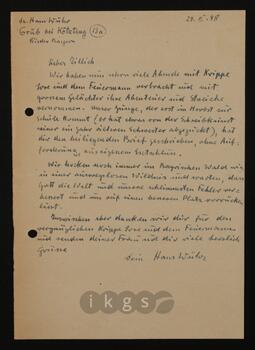 Dr. Hans Wühr
Grub bei Kötzting (13a)
Niederbayern
29. 5. 48
Lieber Zillich
Wir haben nun schon viele Abende mit Krippe
lore und dem Feuermann verbracht und mit
grossem Gelächter ihre Abenteuer und Streiche
vernommen. Unser Junge, der erst im Herbst zur
Schule kommt (er hat etwas von der Schreibkunst
seiner ein Jahr älteren Schwester abgeguckt), hat
dir den beiliegenden Brief geschrieben, ohne Auf-
forderung, aus eigenem Entschluss.
Wir hocken noch immer im Bayrischen Wald wie
in einer ausweglosen Wildnis und warten, dass
Gott die Welt und unsere schlimmsten Fehler ver-
bessert und uns auf einen besseren Platz vorrücken
lässt.
Inzwischen aber danken wir dir für den
vergnüglichen Krippe lore und dem Feuermann
und senden deiner Frau und dir viele herzlich
Grüsse
Dein Hans Wühr
ikgs